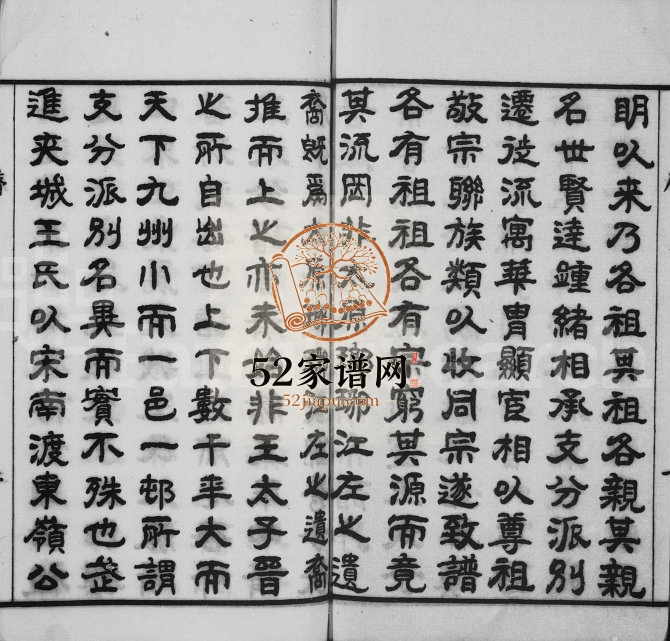 明以来乃各祖其祖各親其親
名世賢達踵緒相承支分派別
遷徙流寓華冑顯宦相以尊祖
敬宗聯族類以收同宗遂致譜
各有祖祖各有宗窮其源而竟
其流罔非太原瑯琊江左之遺
裔既爲太原江左之遺裔
推而上之亦未始非王太子晉
之所自出也上下數千年大而
天下九州小而一邑一邨所謂
支分派別名異而實不殊也茲
進夾城王氏以宋南渡東嶺公
52家谱网
52jiapu.com